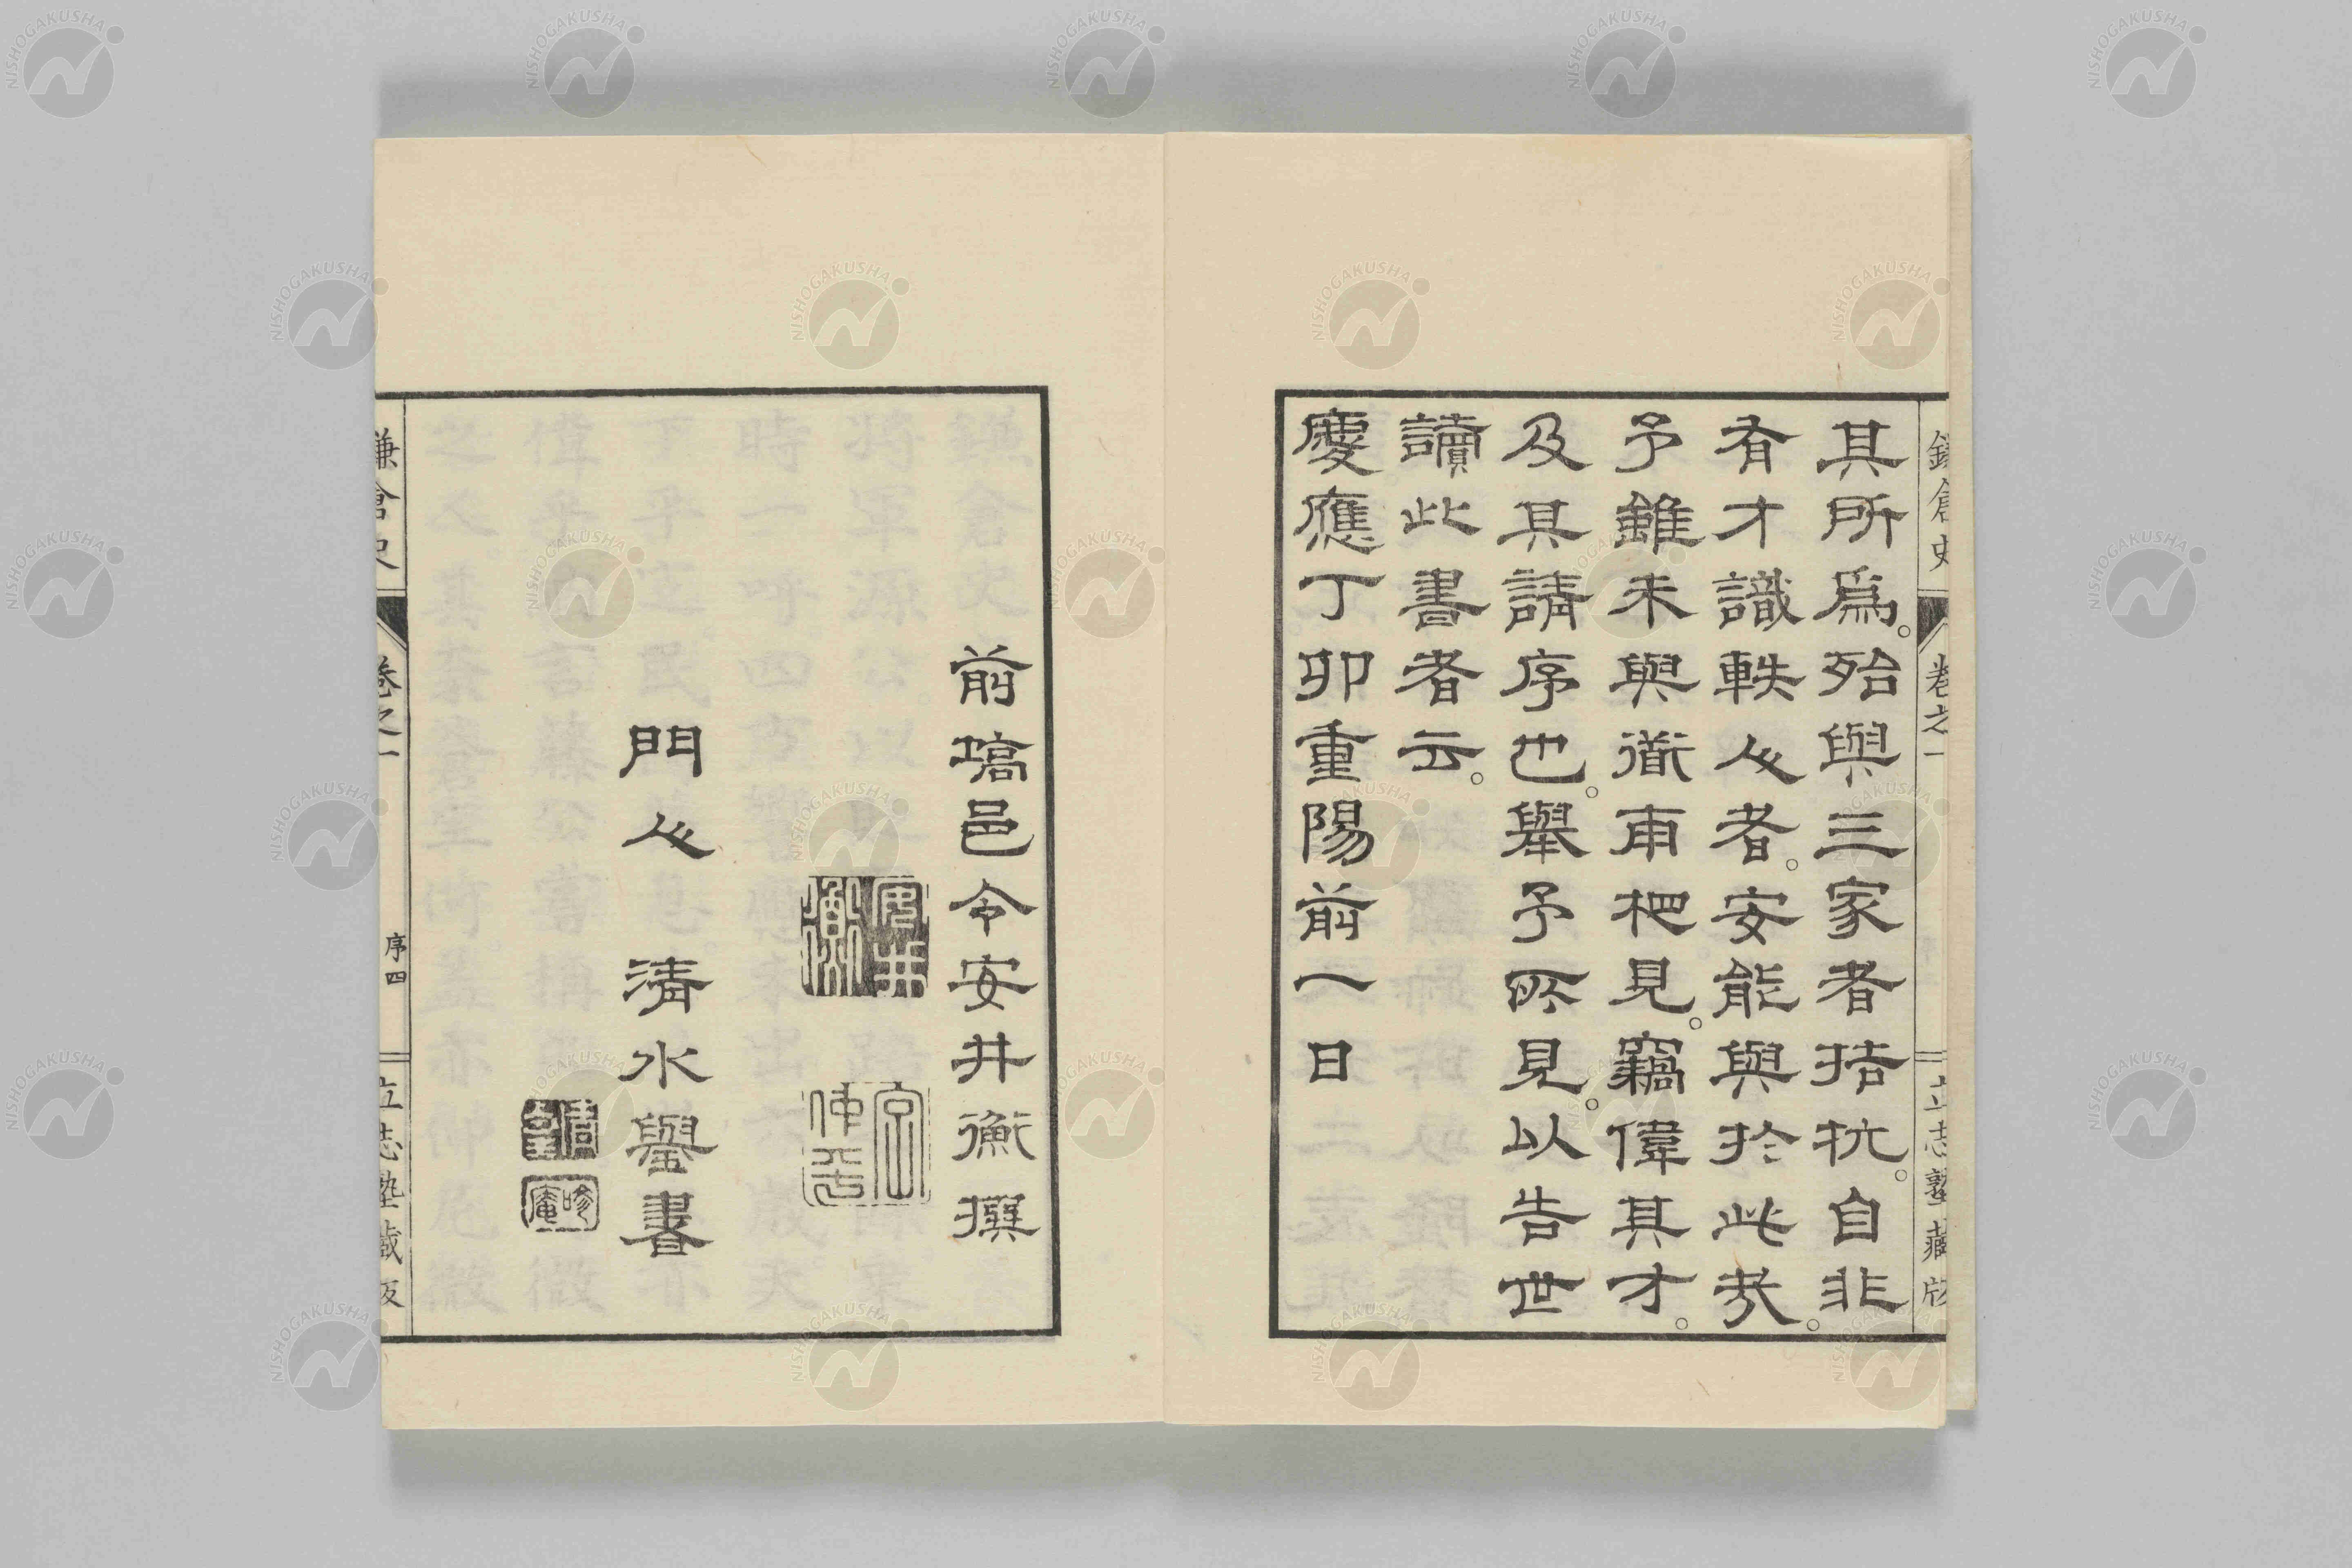 鎌倉史 卷之一 立志塾藏版
其所爲。殆與三家者拮抗。自非
有才識軼人者。安能與於此哉。
予雖未與道甫相見。竊偉其才。
及其請序也。舉予所見。以告世
讀此書者云。
慶應丁卯重陽前一日
前塙邑令安井衡撰
安井衡
仲平
門人 清水礐書
鎌倉史 卷之一 序四 立志塾藏版
NISHOGAKUSHA